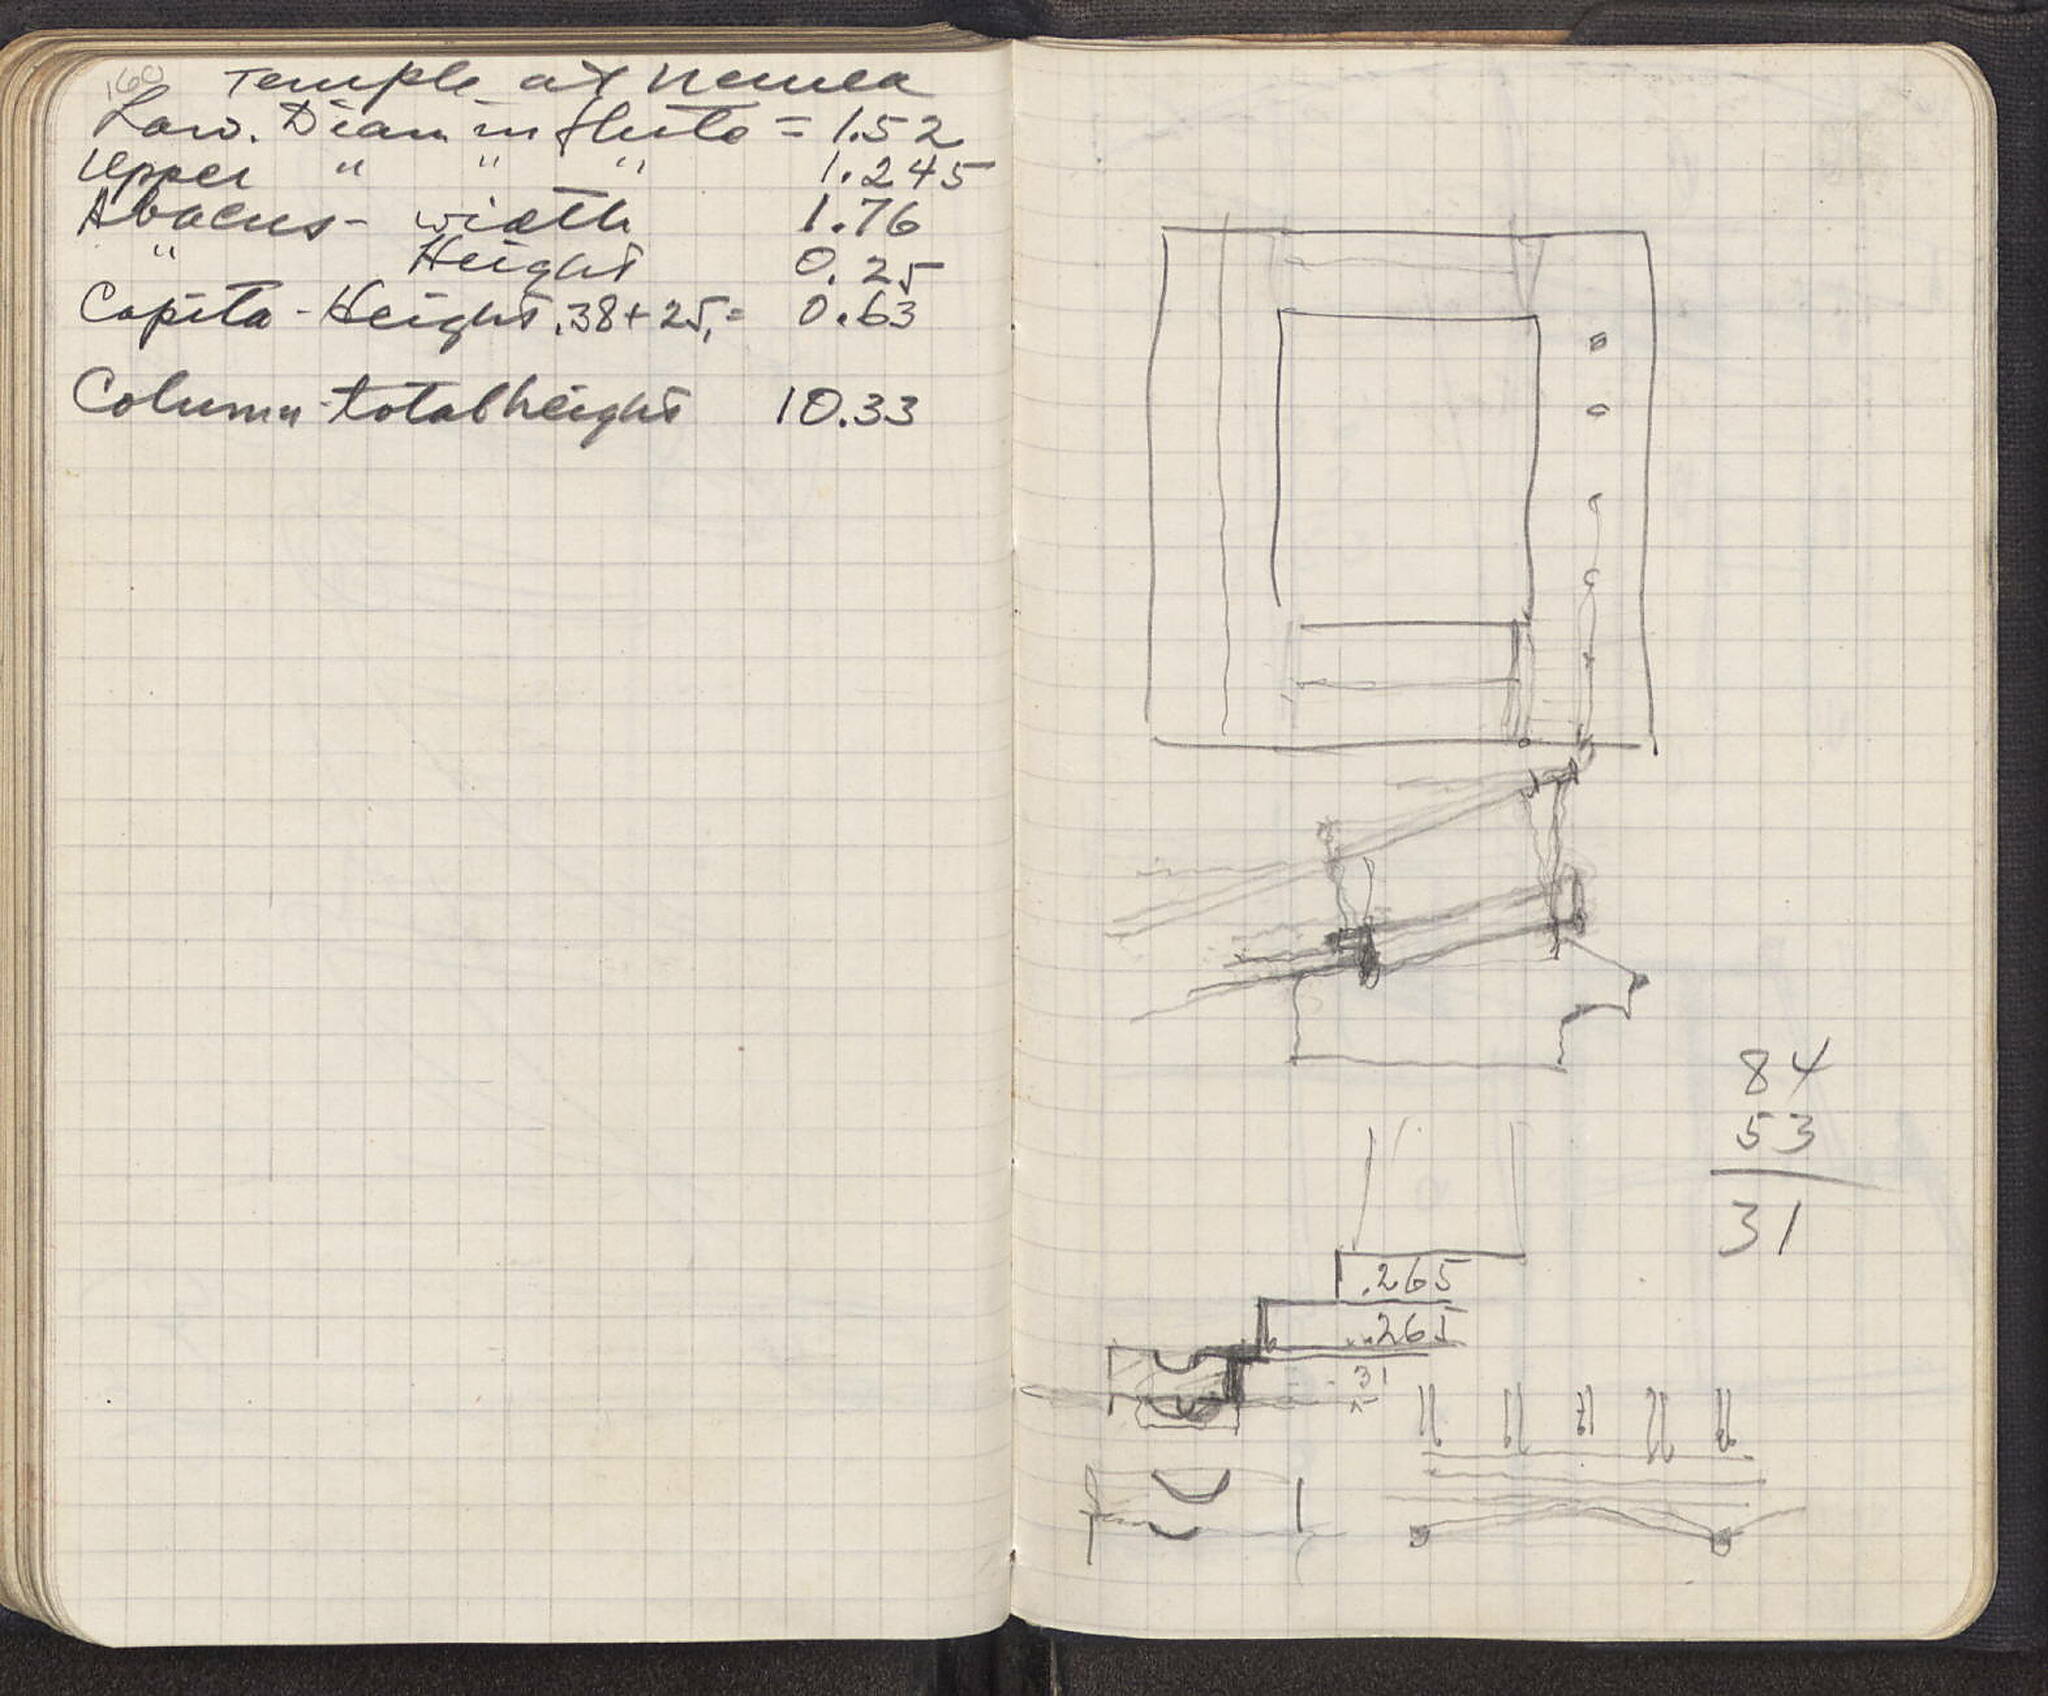 160
Temple at Nemea
Low. Diam in flute = 1.52
Upper " " " 1.245
Abacus - width 1.76
" Height 0.25
Capita - Height .38 + 25, = 0.63
Column - total height 10.33
84
53
31
.265
.265
31